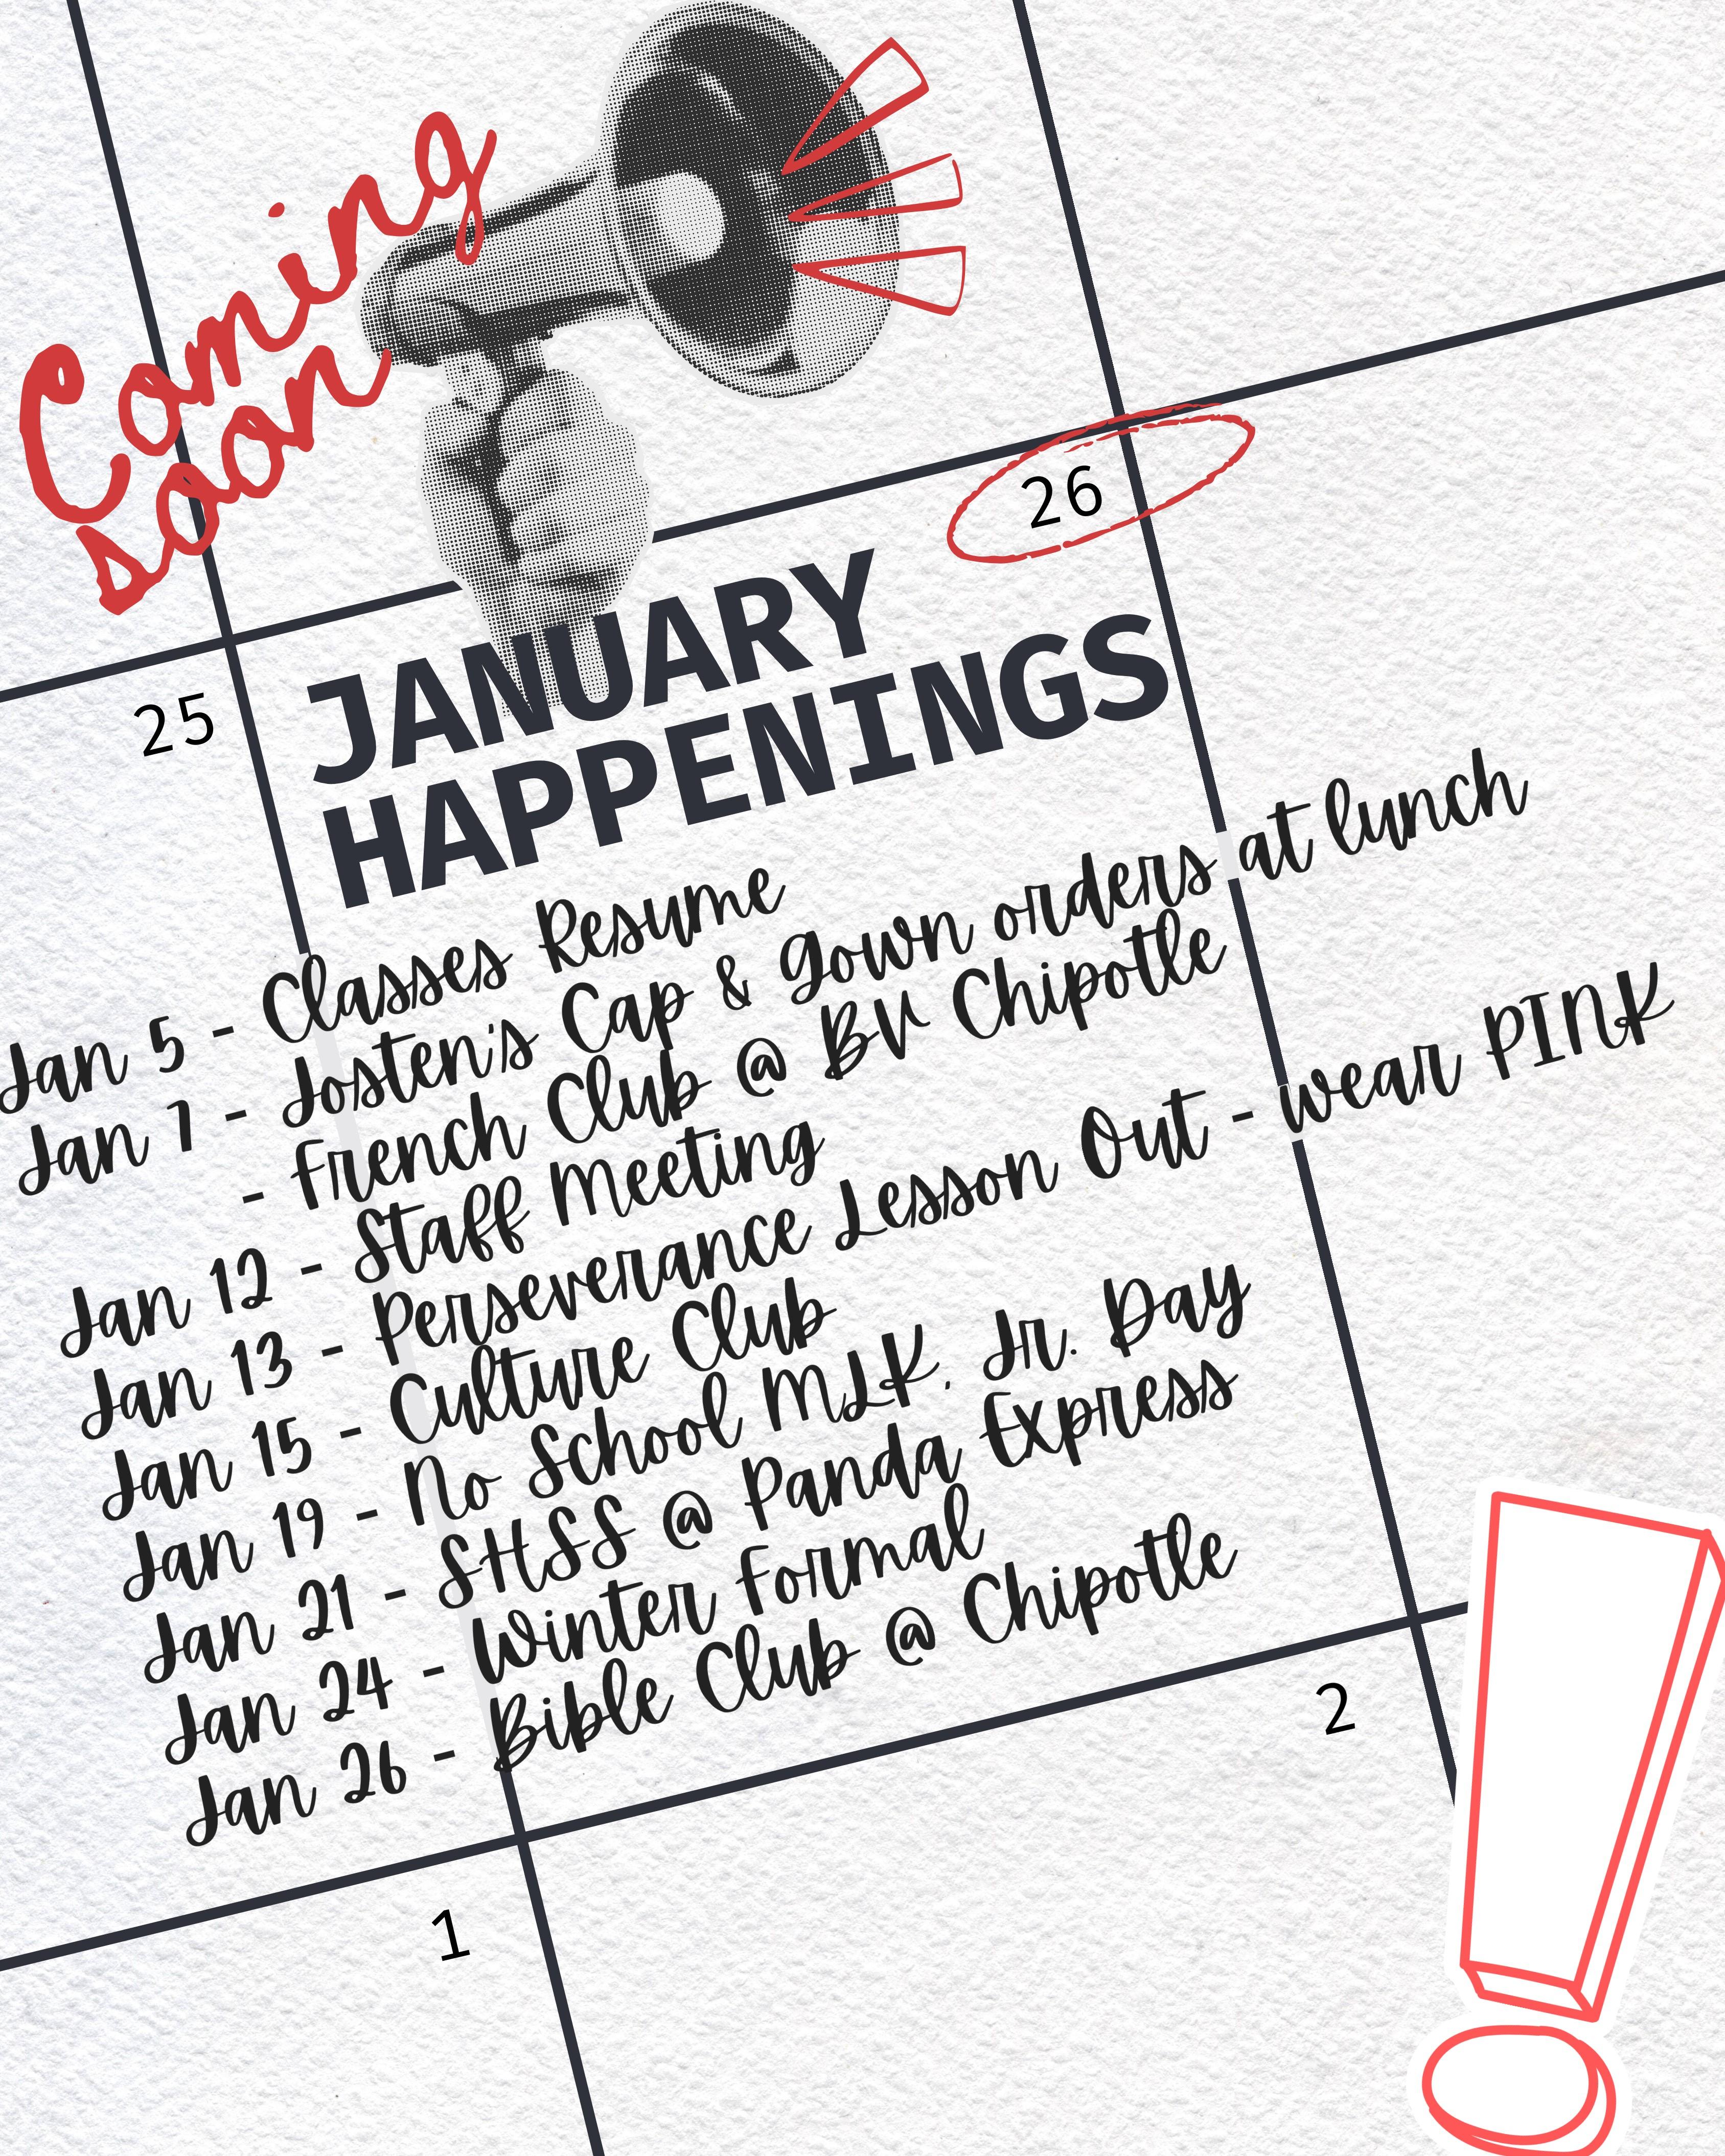 Coming
soon
26
25
JANUARY
HAPPENINGS
Jan 5 - Classes Resume
Jan 7 - Josten's Cap & Gown orders at lunch
- French Club @ BV Chipotle
Jan 12 - Staff Meeting
Jan 13 - Perseverance Lesson Out - wear PINK
Jan 15 - Culture Club
Jan 19 - No School MLK, Jr. Day
Jan 21 - SHSS @ Panda Express
Jan 24 - Winter Formal
Jan 26 - Bible Club @ Chipotle
2
1